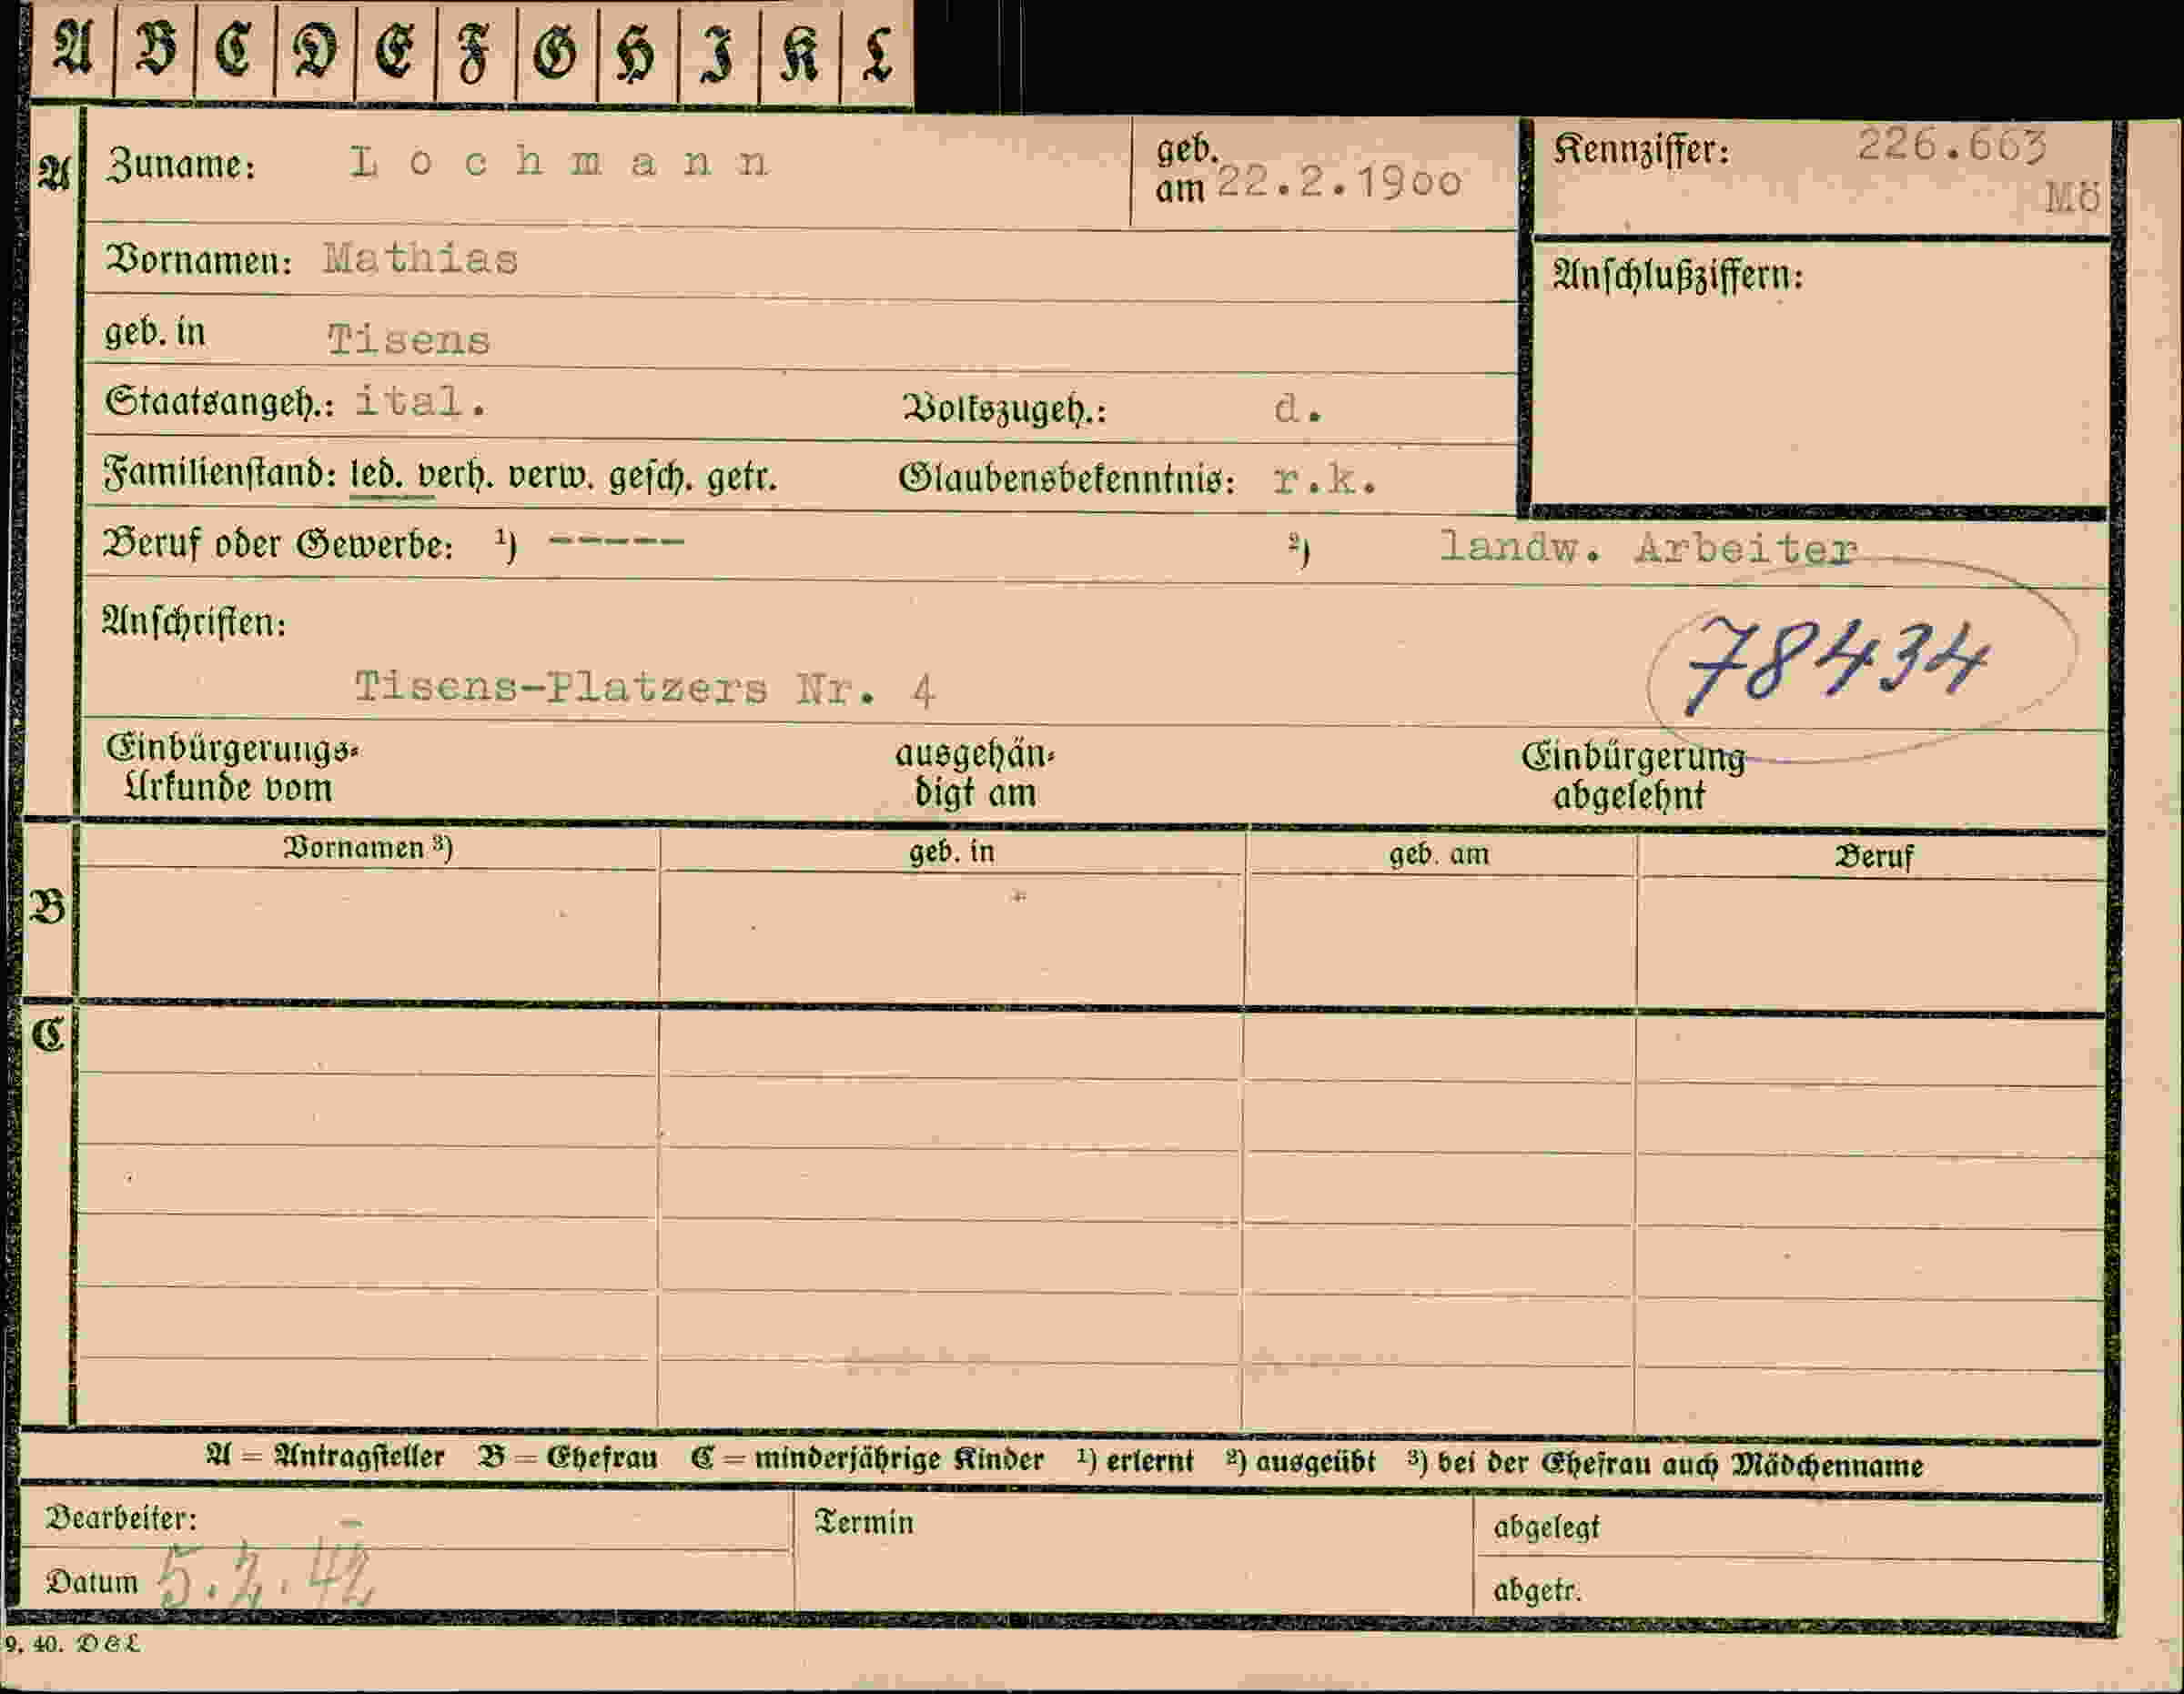 A B C D E F G H I K L
A Zuname: Lochmann geb. am 22.2.1900 Kennziffer: 226.663
Mö
Vornamen: Mathias Anschlußziffern:
geb. in Tisens
Staatsangeh.: ital. Volkszugeh.: d.
Familienstand: led. verh. verw. gesch. getr. Glaubensbekenntnis: r.k.
Beruf oder Gewerbe: ¹) ----- ²) landw. Arbeiter
Anschriften:
78434
Tisens-Platzers Nr. 4
Einbürgerungs- ausgehän- Einbürgerung
Urkunde vom digt am abgelehnt
Vornamen ³) geb. in geb. am Beruf
B
C
A = Antragsteller B = Ehefrau C = minderjährige Kinder ¹) erlernt ²) ausgeübt ³) bei der Ehefrau auch Mädchenname
Bearbeiter: Termin abgelegt
Datum 5.2.42 abgetr.
9, 40. D & L